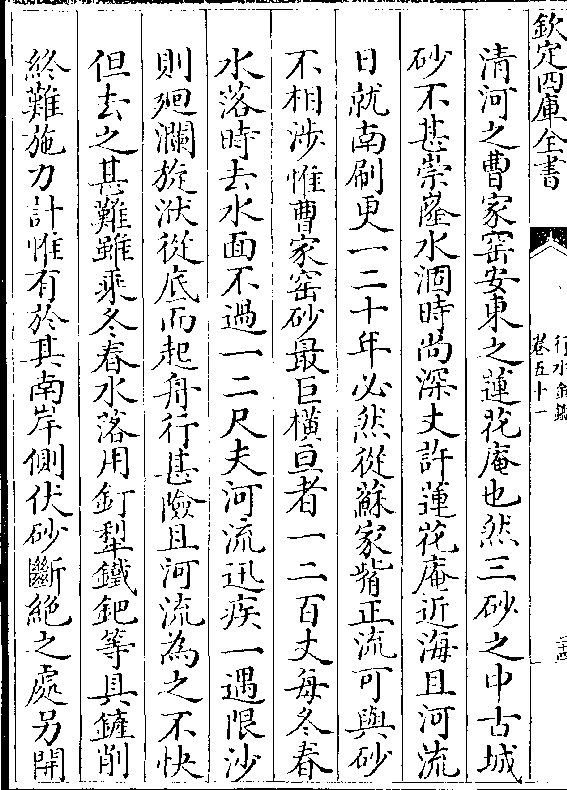 欽定四庫全書
行水金鑑
卷五十一
清河之曹家窑安東之蓮花庵也然三砂之中古城
砂不甚崇窿水涸時尚深丈許蓮花庵近海且河流
日就南刷更一二十年必然從蘇家嘴正流可與砂
不相涉惟曹家窑砂最巨橫亘者一二百丈每冬春
水落時去水面不過一二尺夫河流迅疾一遇限沙
則廻瀾旋洑從底而起舟行甚險且河流為之不快
但去之甚難雖乘冬春水落用釘犂鐵鈀等具鏟削
終難施力計惟有於其南岸側伏砂斷絶之處另開